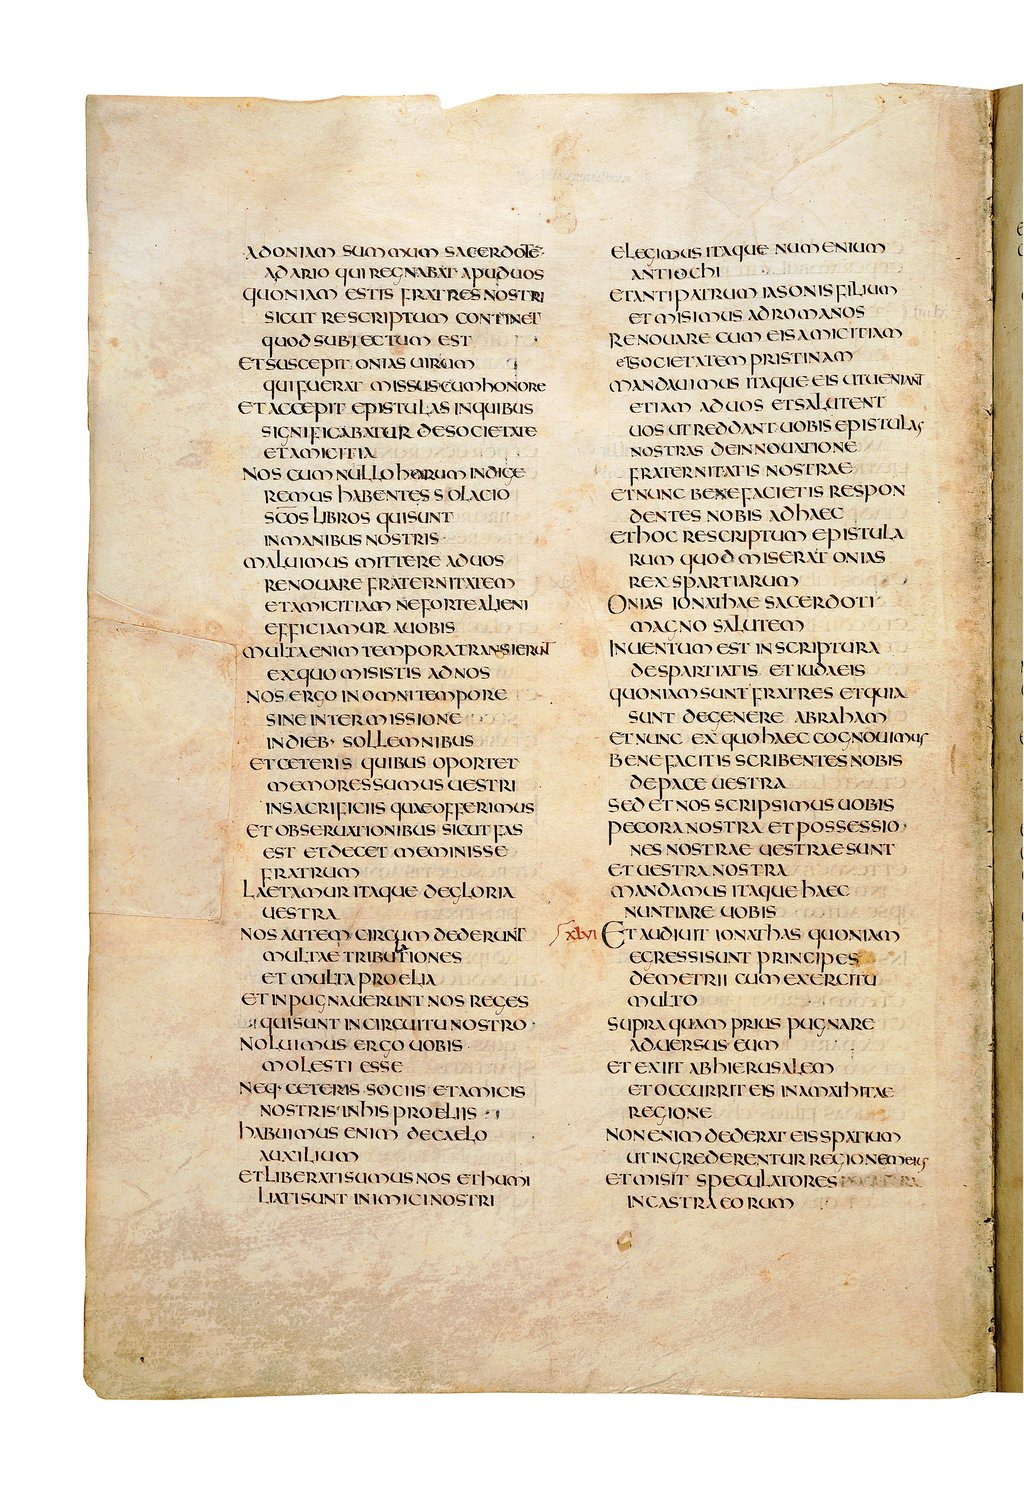 ADONIAM SUMMUM SACERDOTĒ
ADARIO QUI REGNABAT APUD UOS
QUONIAM ESTIS FRATRES NOSTRI
SICUT RESCRIPTUM CONTINET
QUOD SUBIECTUM EST
ET SUSCEPIT ONIAS UIRUM
QUI FUERAT MISSUS CUM HONORE
ET ACCEPIT EPISTULAS IN QUIBUS
SIGNIFICABATUR DE SOCIETATE
ET AMICITIA
NOS CUM NULLO HORUM INDIGE
REMUS HABENTES SOLACIO
SC̄OS LIBROS QUI SUNT
IN MANIBUS NOSTRIS
MALUIMUS MITTERE AD UOS
RENOUARE FRATERNITATEM
ET AMICITIAM NE FORTE ALIENI
EFFICIAMUR A UOBIS
MULTA ENIM TEMPORA TRANSIERUNT
EX QUO MISISTIS AD NOS
NOS ERGO IN OMNI TEMPORE
SINE INTERMISSIONE
IN DIEB· SOLLEMNIBUS
ET CETERIS QUIBUS OPORTET
MEMORES SUMUS UESTRI
IN SACRIFICIIS QUAE OFFERIMUS
ET OBSERUATIONIBUS SICUT FAS
EST ET DECET MEMINISSE
FRATRUM
LAETAMUR ITAQUE DE GLORIA
UESTRA
NOS AUTEM CIRCUM DEDERUNT
MULTAE TRIBULATIONES
ET MULTA PROELIA
ET INPUGNAUERUNT NOS REGES
QUI SUNT IN CIRCUITU NOSTRO
NOLUIMUS ERGO UOBIS
MOLESTI ESSE
NEQ· CETERIS SOCIIS ET AMICIS
NOSTRIS IN HIS PROELIIS
HABUIMUS ENIM DE CAELO
AUXILIUM
ET LIBERATI SUMUS NOS ET HUMI
LIATI SUNT INIMICI NOSTRI
ELEGIMUS ITAQUE NUMENIUM
ANTIOCHI
ET ANTIPATRUM IASONIS FILIUM
ET MISIMUS AD ROMANOS
RENOUARE CUM EIS AMICITIAM
ET SOCIETATEM PRISTINAM
MANDAUIMUS ITAQUE EIS UT UENIANT
ETIAM AD UOS ET SALUTENT
UOS UT REDDANT UOBIS EPISTULAS
NOSTRAS DE INNOUATIONE
FRATERNITATIS NOSTRAE
ET NUNC BENE FACIETIS RESPON
DENTES NOBIS AD HAEC
ET HOC RESCRIPTUM EPISTULA
RUM QUOD MISERAT ONIAS
REX SPARTIARUM
ONIAS IONATHAE SACERDOTI
MAGNO SALUTEM
INUENTUM EST IN SCRIPTURA
DE SPARTIATIS ET IUDAEIS
QUONIAM SUNT FRATRES ET QUIA
SUNT DE GENERE ABRAHAM
ET NUNC EX QUO HAEC COGNOUIMUS
BENE FACITIS SCRIBENTES NOBIS
DE PACE UESTRA
SED ET NOS SCRIPSIMUS UOBIS
PECORA NOSTRA ET POSSESSIO
NES NOSTRAE UESTRAE SUNT
ET UESTRA NOSTRA
MANDAMUS ITAQUE HAEC
NUNTIARE UOBIS
XLVI ET AUDIUIT IONATHAS QUONIAM
EGRESSI SUNT PRINCIPES
DEMETRII CUM EXERCITU
MULTO
SUPRA QUAM PRIUS PUGNARE
ADUERSUS EUM
ET EXIIT AB HIERUSALEM
ET OCCURRIT EIS IN AMATHITAE
REGIONE
NON ENIM DEDERAT EIS SPATIUM
UT INGREDERENTUR REGIONEM EIUS
ET MISIT SPECULATORES
IN CASTRA EORUM